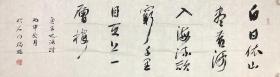 白日依山
盡黃河
入海流欲
窮千里
目更上一
層樓
王之渙詩
丙申